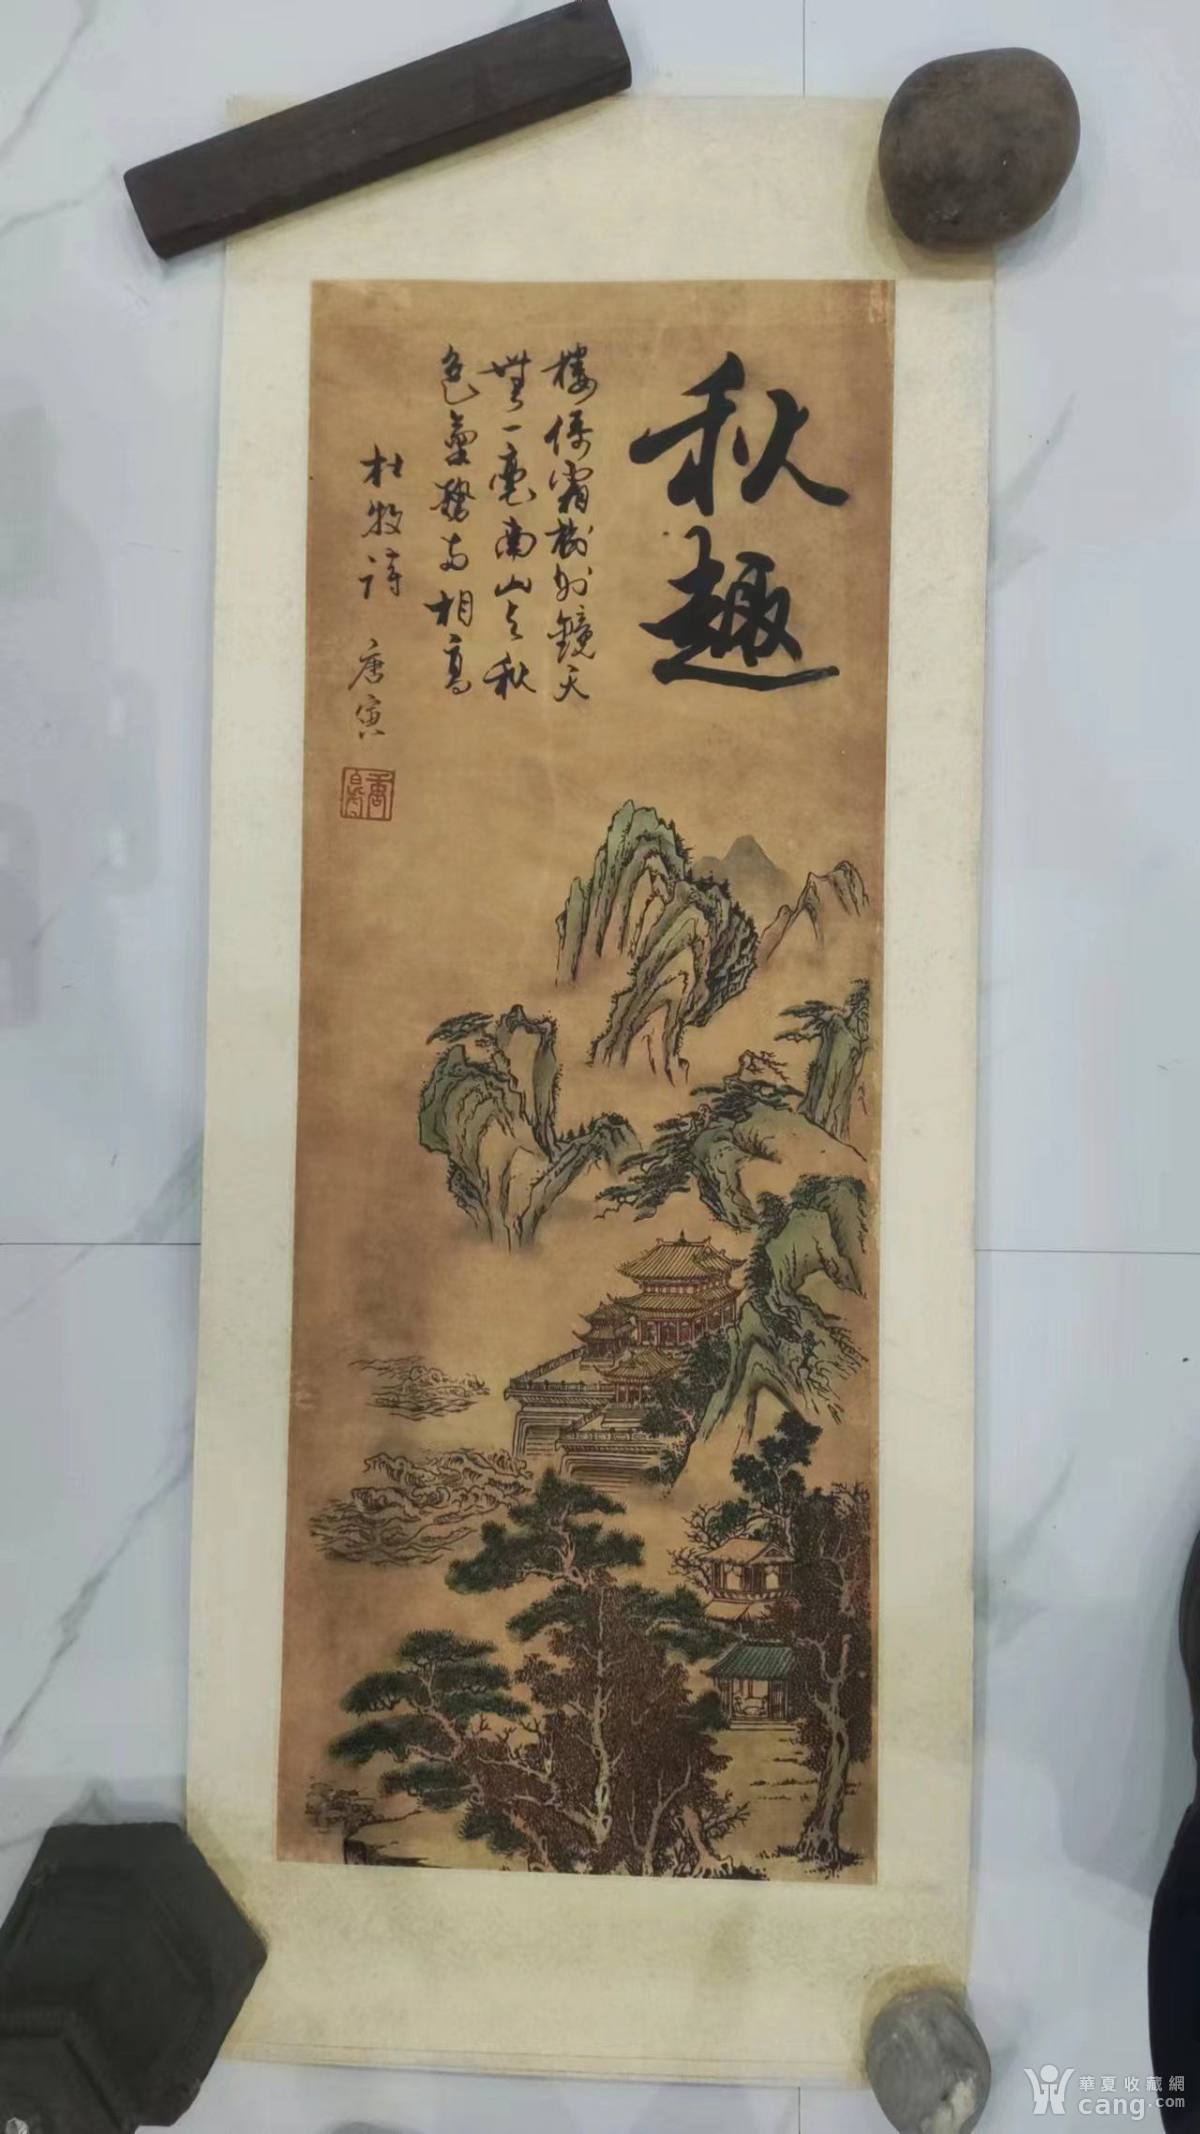 秋趣
樓倚霜樹外鏡天
無一毫南山与秋
色氣勢兩相高
杜牧詩 唐寅
華夏收藏網
cang.com